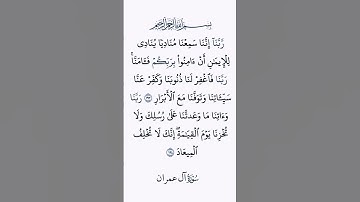 بسم الله الرحمن الرحيم
رَّبَّنَآ إِنَّنَا سَمِعْنَا مُنَادِيًا يُنَادِى
لِلْإِيمَـٰنِ أَنْ ءَامِنُوا۟ بِرَبِّكُمْ فَـَٔامَنَّا
رَبَّنَا فَٱغْفِرْ لَنَا ذُنُوبَنَا وَكَفِّرْ عَنَّا
سَيِّـَٔاتِنَا وَتَوَفَّنَا مَعَ ٱلْأَبْرَارِ ١٩٣ رَبَّنَا
وَءَاتِنَا مَا وَعَدتَّنَا عَلَىٰ رُسُلِكَ وَلَا
تُخْزِنَا يَوْمَ ٱلْقِيَـٰمَةِ ۗ إِنَّكَ لَا تُخْلِفُ
ٱلْمِيعَادَ ١٩٤
سُورَةُ آل عمران